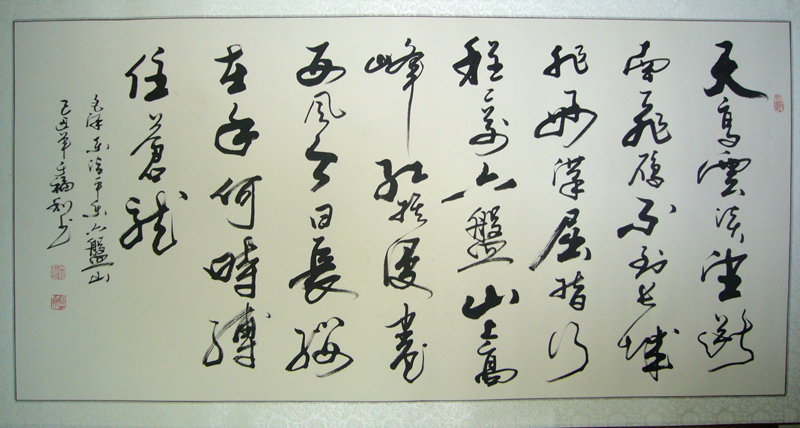 天高雲淡望斷
南飛雁不到长城
非好漢屈指行
程二萬六盤山上高
峰红旗漫卷
西风今日長纓
在手何時縛
住蒼龍
毛泽东清平乐六盤山
己丑年福利书